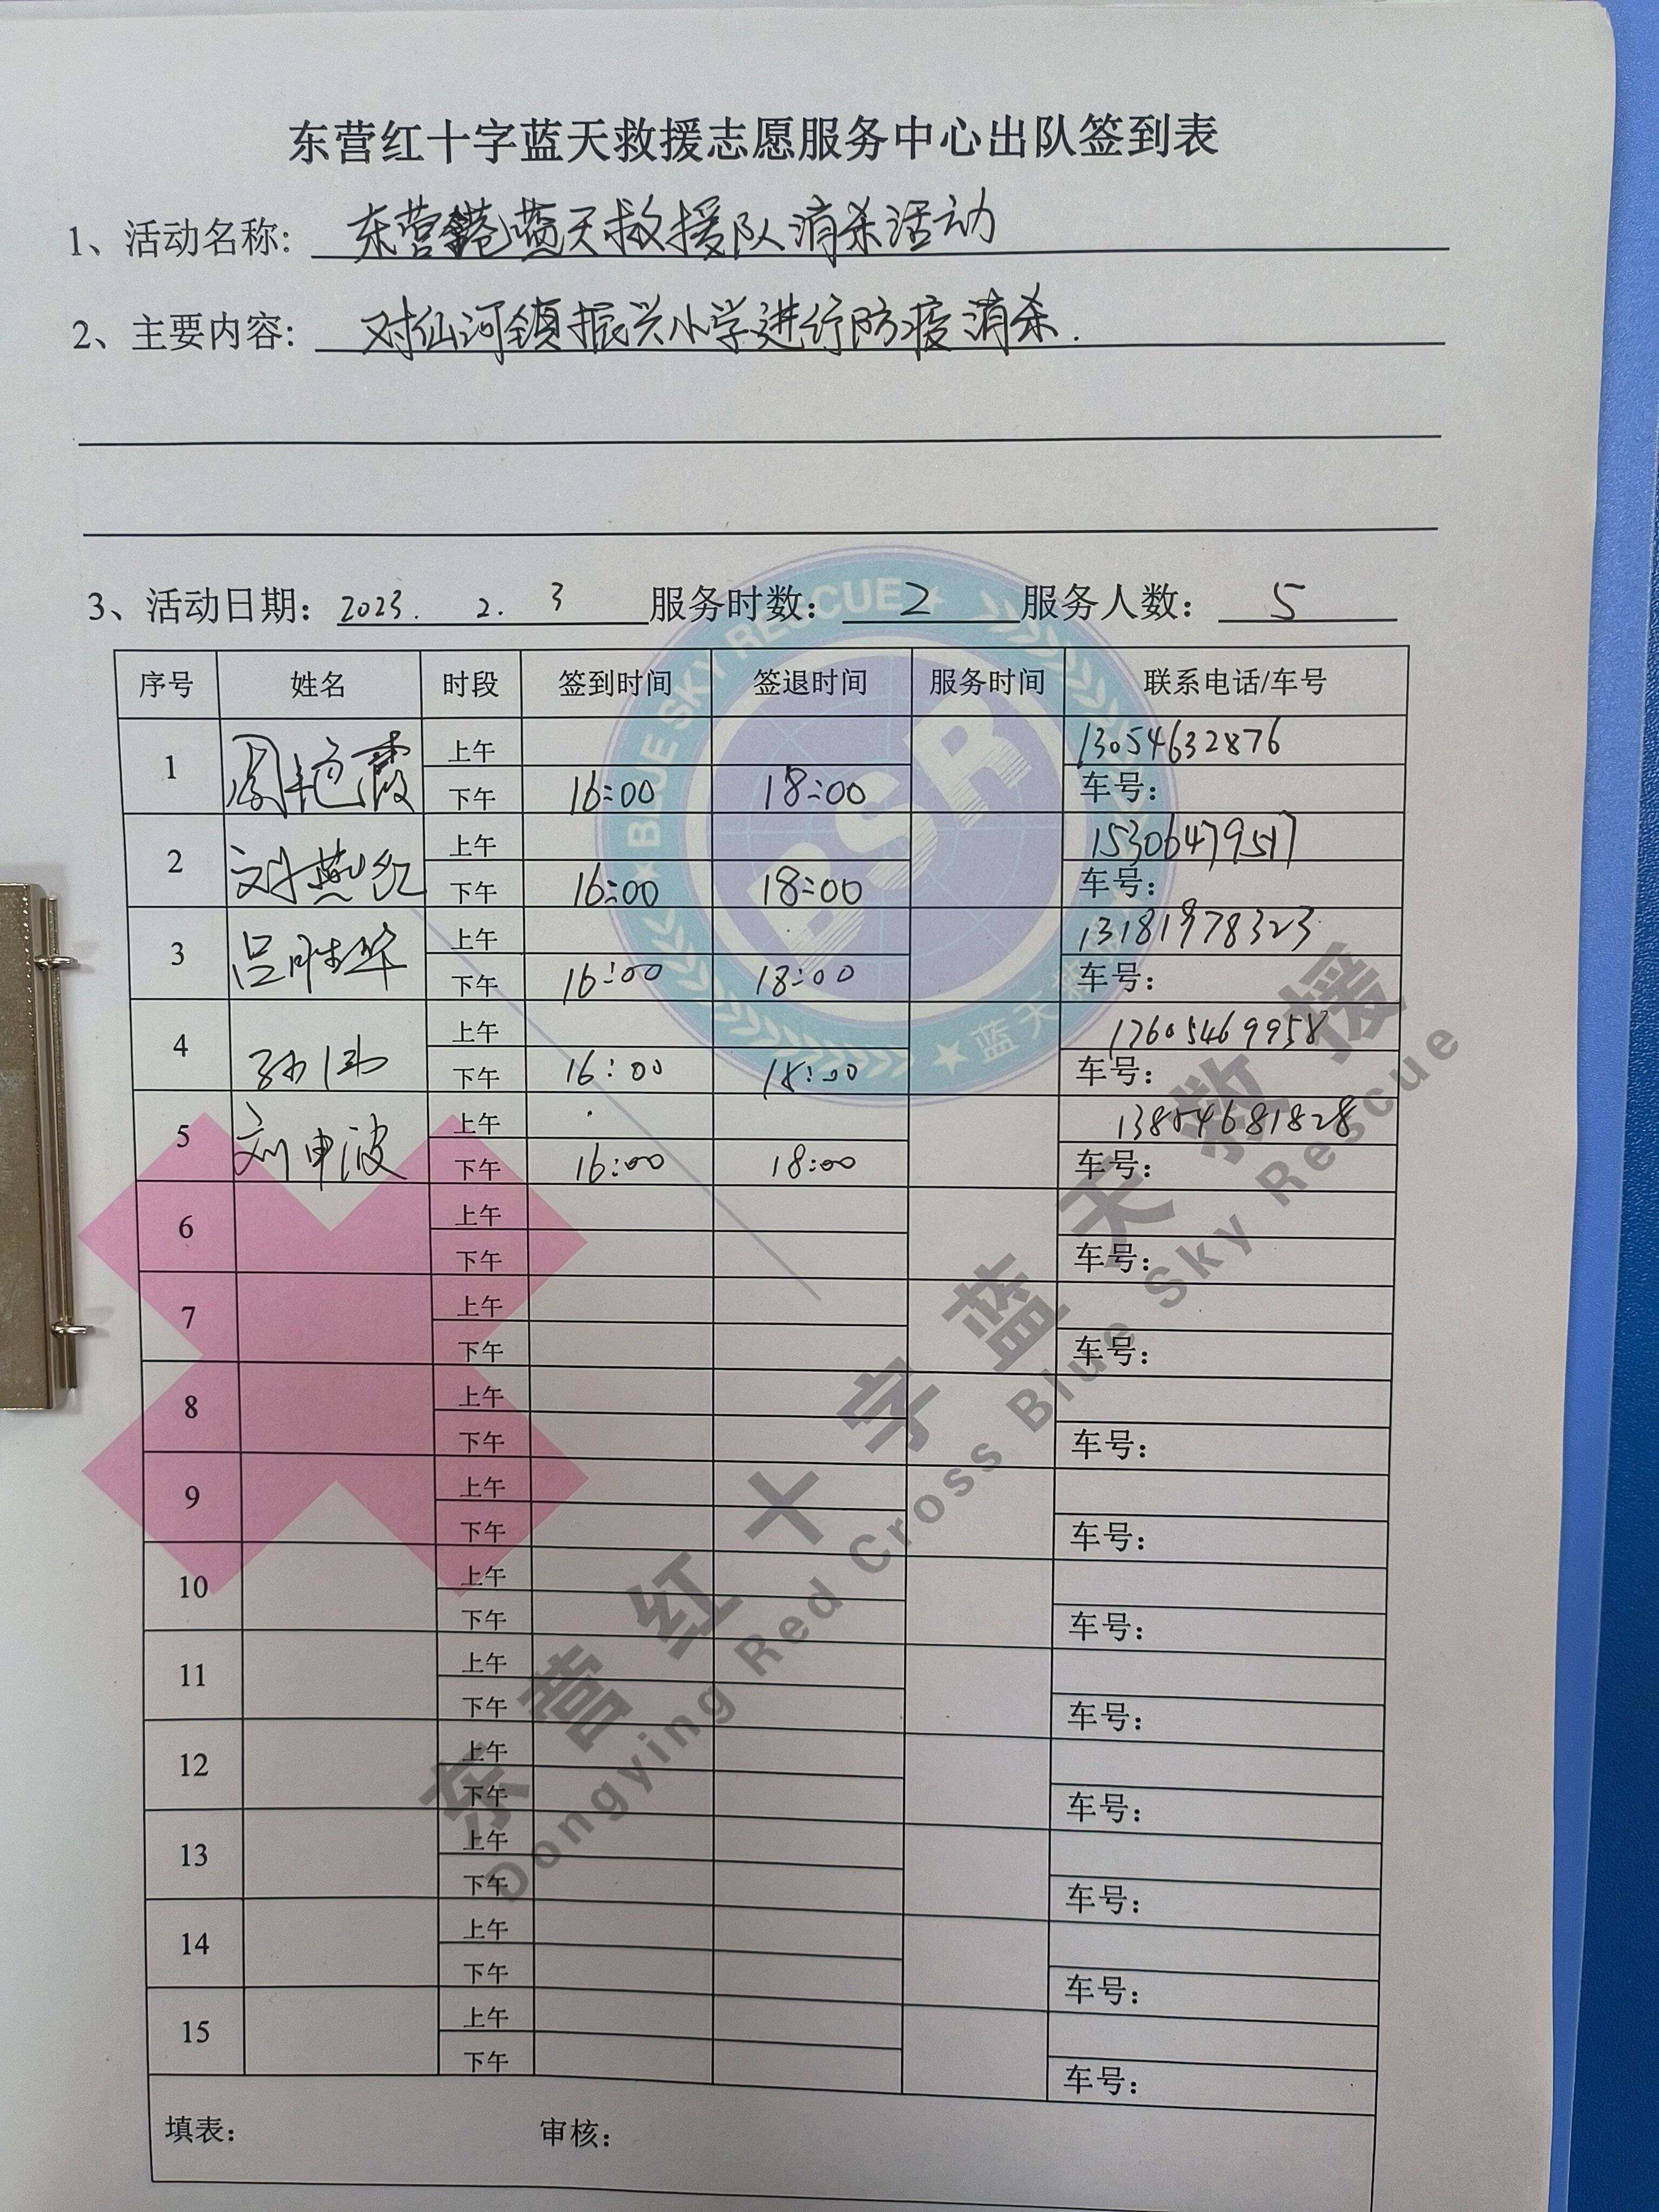 东营红十字蓝天救援志愿服务中心出队签到表
1、活动名称: 东营港蓝天救援队消杀活动
2、主要内容: 对仙河镇振兴小学进行防疫消杀.
3、活动日期: 2023. 2. 3 服务时数: 2 服务人数: 5
序号 姓名 时段 签到时间 签退时间 服务时间 联系电话/车号
1 周艳霞 上午 13054632876
下午 16:00 18:00 车号:
2 刘燕红 上午 15306479517
下午 16:00 18:00 车号:
3 吕胜华 上午 13181978323
下午 16:00 18:00 车号:
4 孙伟 上午 17605469958
下午 16:00 18:00 车号:
5 刘申波 上午 13854681828
下午 16:00 18:00 车号:
6 上午
下午 车号:
7 上午
下午 车号:
8 上午
下午 车号:
9 上午
下午 车号:
10 上午
下午 车号:
11 上午
下午 车号:
12 上午
下午 车号:
13 上午
下午 车号:
14 上午
下午 车号:
15 上午
下午 车号:
填表: 审核:
BLUE SKY RESCUE
BSR
蓝天救援
东营红十字蓝天救援
Dongying Red Cross Blue Sky Rescue